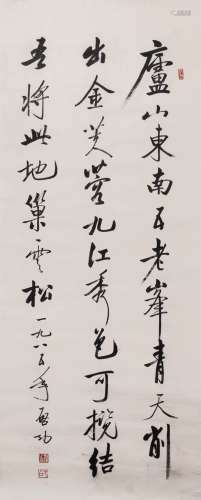 廬山東南五老峯青天削
出金芙蓉九江秀色可攬結
吾將此地巢雲松一九八五年啟功